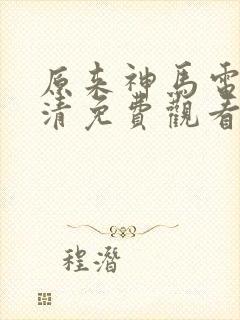 原來神馬電
清免費觀看
程潛